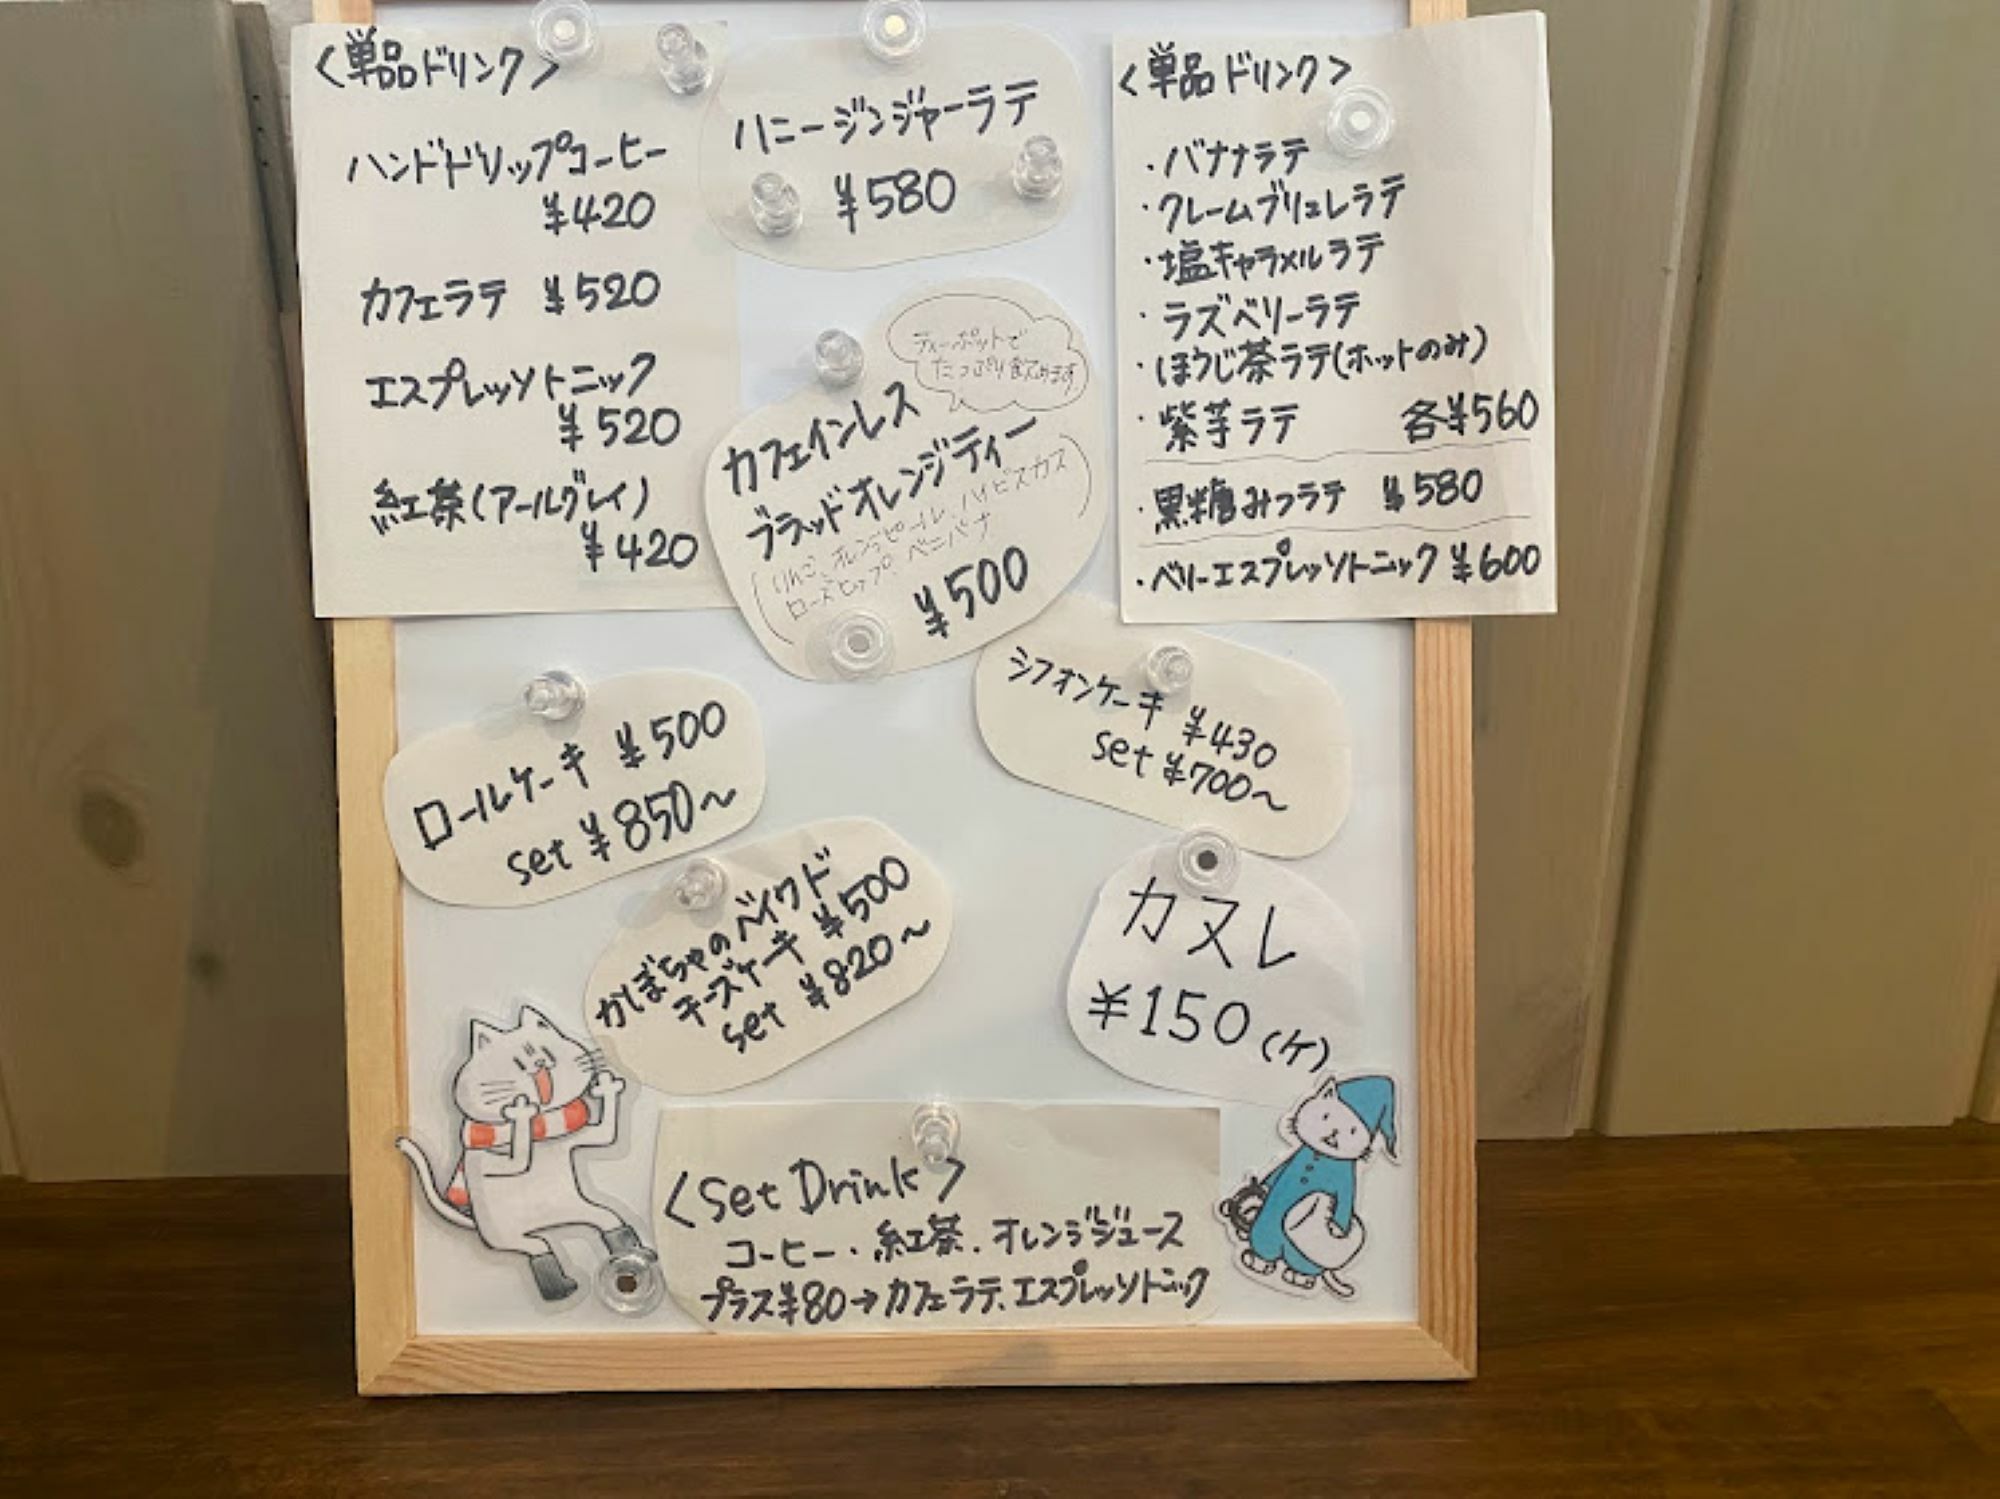 〈単品ドリンク〉
ハンドドリップコーヒー
¥420
カフェラテ ¥520
エスプレッソトニック
¥520
紅茶(アールグレイ)
¥420
ハニージンジャーラテ
¥580
ティーポットで
たっぷり飲めます
カフェインレス
ブラッドオレンジティー
(りんご、オレンジピール、ハイビスカス
ローズヒップ、ベニバナ)
¥500
〈単品ドリンク〉
・バナナラテ
・クレームブリュレラテ
・塩キャラメルラテ
・ラズベリーラテ
・ほうじ茶ラテ(ホットのみ)
・紫芋ラテ 各¥560
・黒糖みつラテ ¥580
・ベリーエスプレッソトニック ¥600
ロールケーキ ¥500
set ¥850〜
シフォンケーキ ¥430
set ¥700〜
かぼちゃのベイクド
チーズケーキ ¥500
set ¥820〜
カヌレ
¥150(ケ)
〈Set Drink〉
コーヒー・紅茶・オレンジジュース
プラス¥80→カフェラテ、エスプレッソトニック